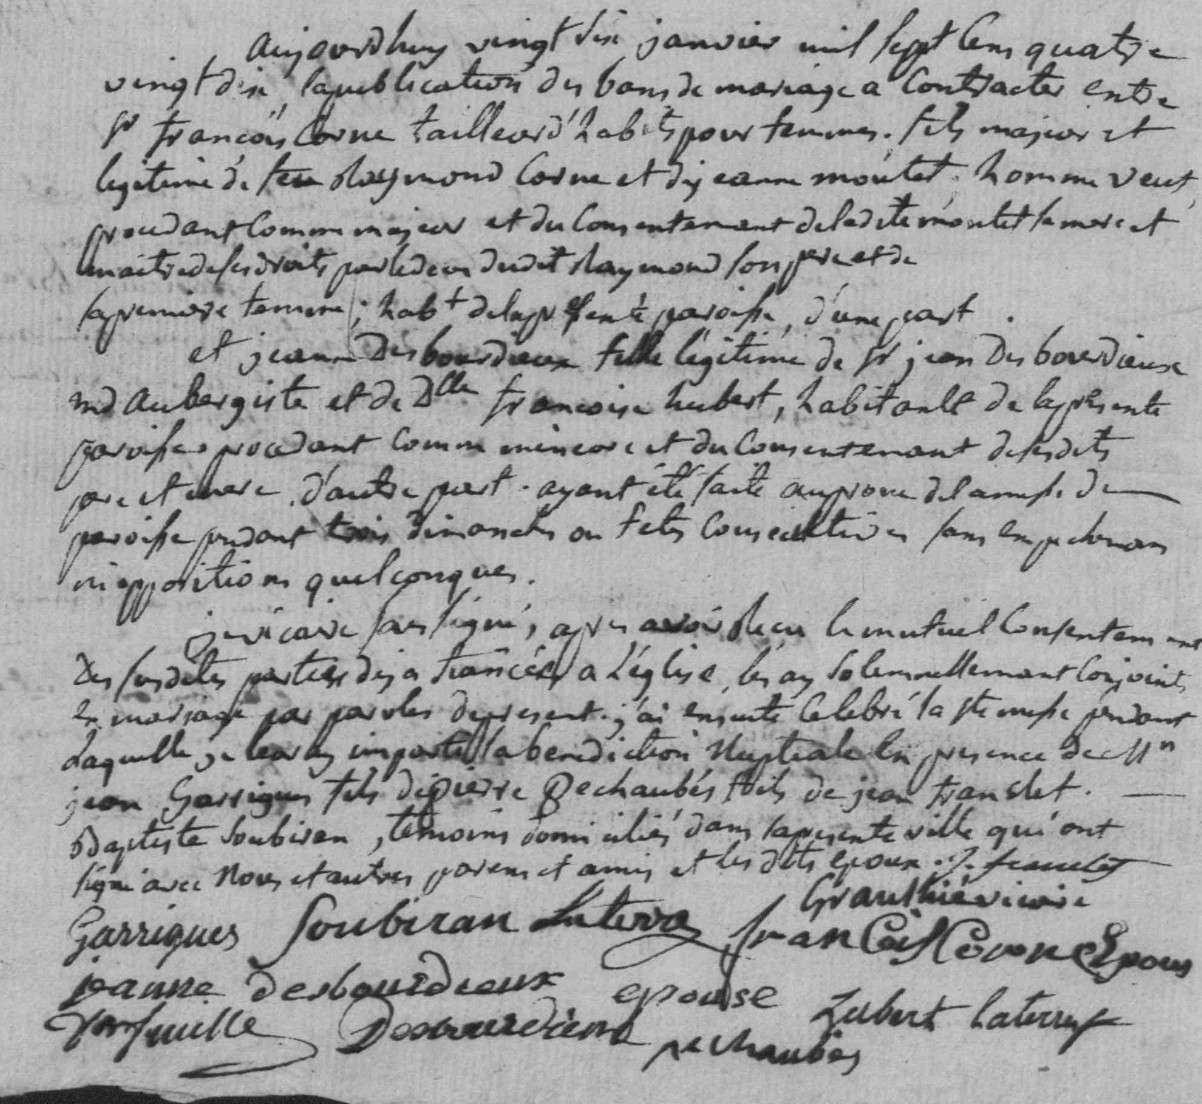 Aujourdhuy vingt six janvier mil sept cens quatre
vingt dix, la publication des bans de mariage a contracter entre
Sr françois Corne tailleur d'habits pour femmes. fils majeur et
legitime de feu Raymond Corne et de jeanne moutet. homme veuf,
procedant comme majeur et du Consentement de ladite moutet sa mere et
maitre de ses droits par le deces dudit Raymond son pere et de
sa premiere femme; habt de la presente paroisse, d'une part.
et jeanne Desbourdieux fille légitime de Sr jean Desbourdieux
md aubergiste et de Dlle francoise hubert, habitante de la presente
paroisse procedant comme mineure et du Consentement de sesdits
pere et mere, d'autre part. ayant été faite au prone de la messe de
paroisse pendant trois dimanches ou fetes Consecutives sans empechemens
ni oppositions quelconques.
je vicaire soussigné, apres avoir Recu le mutuel Consentement
Des susdites parties deja fiancées a l'église, les ay solemnellement Conjoints
en mariage par paroles de present. j'ai ensuite Celebré la ste messe pendant
Laquelle je leur ay imparti la benediction Nuptiale En presence de Mrs
jean Garrigues fils de pierre Pechaubés fils de jean franclet.
Baptiste Soubiran, témoins domiciliés dans la presente ville qui ont
signé avec Nous et autres parens et amis et lesdits epoux. J. franclet
Grauthié vicaire
Garrigues Soubiran Laterra françois Corne Epoux
jeanne desbourdieux epouse hubert Laterrasse
Desbourdieux pechaubés